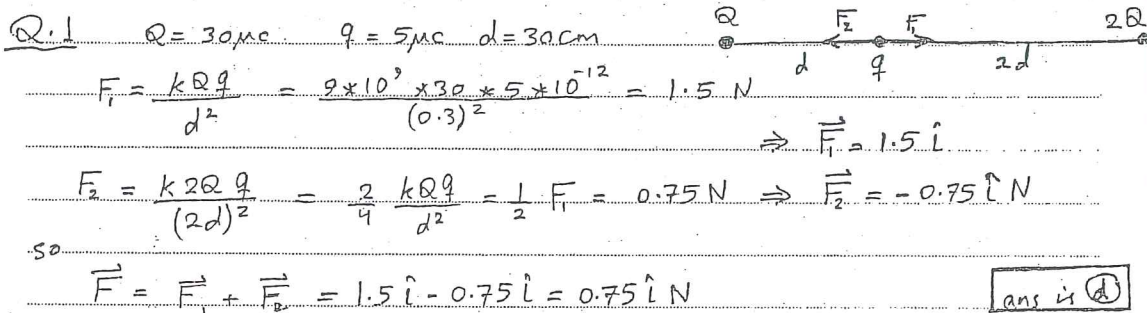 Q.1 Q = 30μc q = 5μc d = 30cm
Q F₂ F₁ 2Q
d q 2d
F₁ = kQq/d² = 9*10⁹*30*5*10⁻¹²/(0.3)² = 1.5 N
⇒ F₁⃗ = 1.5 î
F₂ = k2Qq/(2d)² = 2/4 kQq/d² = 1/2 F₁ = 0.75 N ⇒ F₂⃗ = -0.75 î N
so
F⃗ = F₁⃗ + F₂⃗ = 1.5 î - 0.75 î = 0.75 î N ans is ⓓ